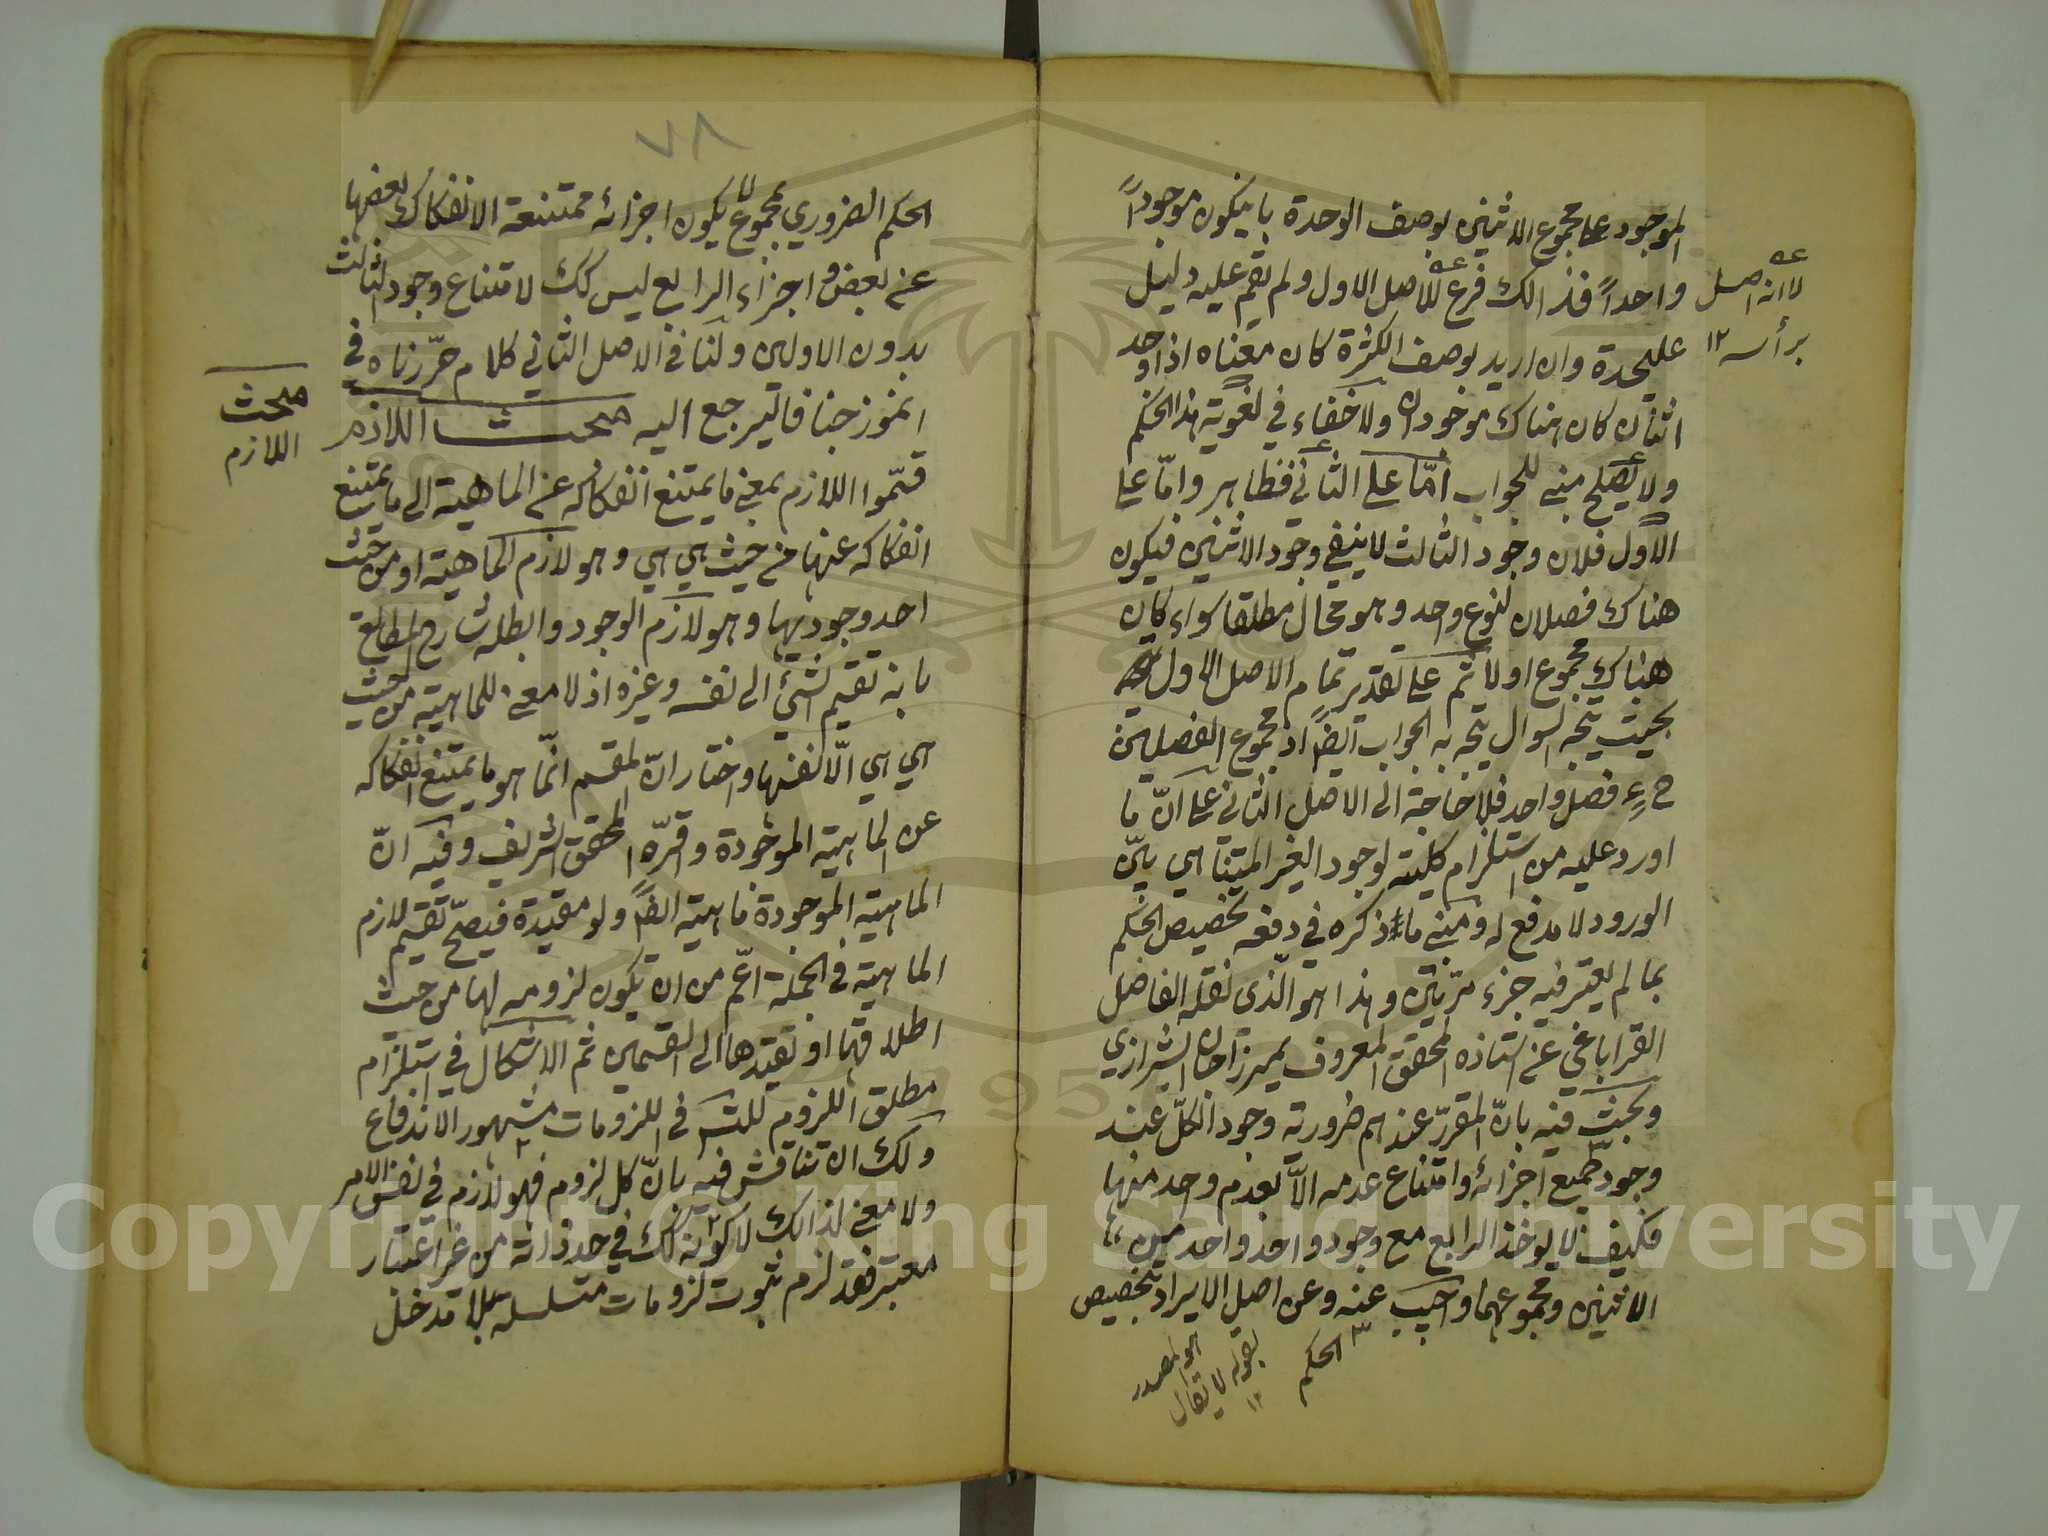 الموجود على مجموع الاثنين بوصف الوحدة بان يكون موجوداً
واحداً فذالك فرع للاصل الاول ولم يقم عليه دليل
عليحدة وان اريد بوصف الكثرة كان معناه اذا وجد
اثنان كان هناك موجودان ولا خفاء في لغوية هذا الحكم
ولا يصلح مبنى للجواب أمّا على الثاني فظاهر وامّا على
الاول فلان وجود الثالث لا ينفي وجود الاثنين فيكون
هناك فصلان لنوع واحد وهو محال مطلقا سواء كان
هناك مجموع اولا ثم على تقدير تمام الاصل الاول
بحيث يتجه السوال يتجه به الجواب ايضا اذ مجموع الفصلين
ح فصل واحد فلا حاجة الى الاصل الثاني على انّ ما
اورد عليه من استلزام كليته لوجود الغير المتناهي بيّن
الورود لا مدفع له ومبنى ما ذكره في دفعه تخصيص الحكم
بما لم يعتبر فيه جزء مرّتين وهذا هو الّذى نقله الفاضل
القراباغي عن استاذه المحقق المعروف بميرزاجان الشيرازي
وبحث فيه بانّ المقرّر عندهم ضرورية وجود الكلّ عند
وجود جميع اجزائه وامتناع عدمه الاّ بعدم واحد منها
فكيف لا يوخذ الرابع مع وجود واحد واحد من
الاثنين ومجموعهما واجيب عنه وعن اصل الايراد بتخصيص
الحكم
هو المصدر
بقوله لا يقال
١٢
عه
لا انه اصل
برأسه ١٢
٧٨
الحكم الضروري بمجموع لا يكون اجزائه ممتنعة الانفكاك بعضها
عن بعض و اجزاء الرابع ليس كك لامتناع وجود الثالث
بدون الاولين ولنا في الاصل الثاني كلام حرّرناه في
انموزجنا فاليرجع اليه مبحث اللازم
قسّموا اللازم بمعنى ما يمتنع انفكاكه عن الماهية الى ما يمتنع
انفكاكه عنها من حيث هي هي وهو لازم الماهية او من حيث
احد وجوديها وهو لازم الوجود وابطله شارح المطالع
بانه تقسيم الشيء الى نفسه وغيره اذ لا معنى للماهية من حيث
هي هي الاّ نفسها واختار انّ المقسم انّما هو ما يمتنع انفكاكه
عن الماهية الموجودة وقرّره المحقق الشريف وفيه انّ
الماهية الموجودة ماهية ايضاً ولو مقيدة فيصحّ تقسيم لازم
الماهية في الجملة اعّم من ان يكون لزومه لها من حيث
اطلاقها او تقيّدها الى القسمين ثم الاشكال في استلزام
مطلق اللزوم للتس في اللزومات مشهور الاندفاع
ولك ان تناقش فيه بانّ كل لزوم فهو لازم في نفس الامر
ولا معنى لذالك الا كونه كك في حد ذاته من غير اعتبار
معتبر فقد لزم ثبوت لزومات متسلسلة بلا مدخل
مبحث
اللازم